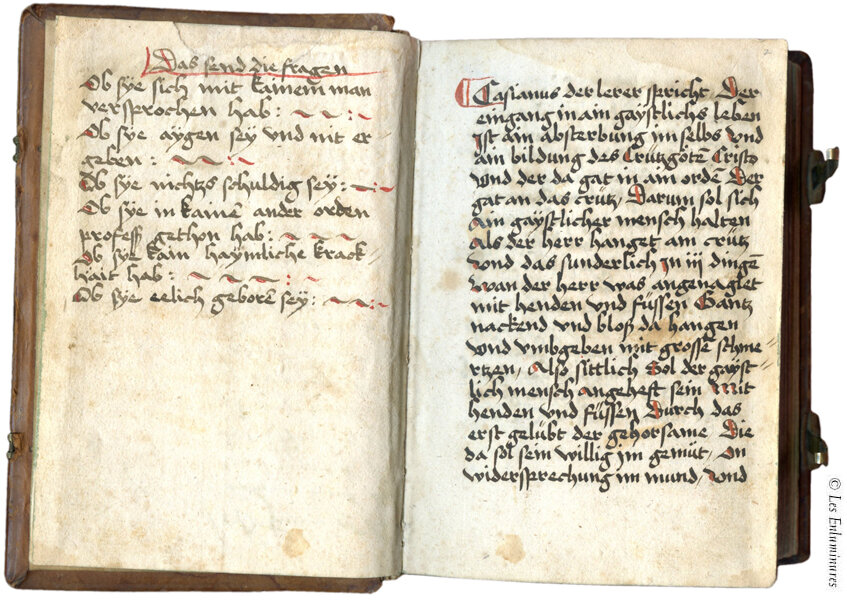 Das send die fragen
Ob sye sich mit kainem man
versprochen hab:
Ob sye aygen sey vnd nit er-
geben:
Ob sye nichtzs schuldig sey:
Ob sye in kainē ander orden
professs gethon hab:
Ob sye kain haymliche kranck
hait hab:
Ob sye eelich geborē sey:
2
Casianus der lerer spricht Der
eingang in ain gaystlichs leben
ist ain absterbung im selbs vnd
ain bildung des Crützgotē Cristo
vnd der da gat in am ordē Der
gat an das crütz / Darum sol sich
ain gaystlicher mensch halten
Als der herr hanget am crütz
vnd das sunderlich in iii dingē
Wan der herr was angenaglet
mit henden vnd füssen Gantz
nackend vnd bloß da hangen
vnd vmbgeben mit grossē schme-
rtzen / Also sittlich Sol der gayst
lich mensch angeheft sein Mit
henden vnd füssen Durch das
erst gelübt der gehorsame Die
da sol sein willig im gemüt / On
widersprechung im mund / Vnd
© Les Enluminures